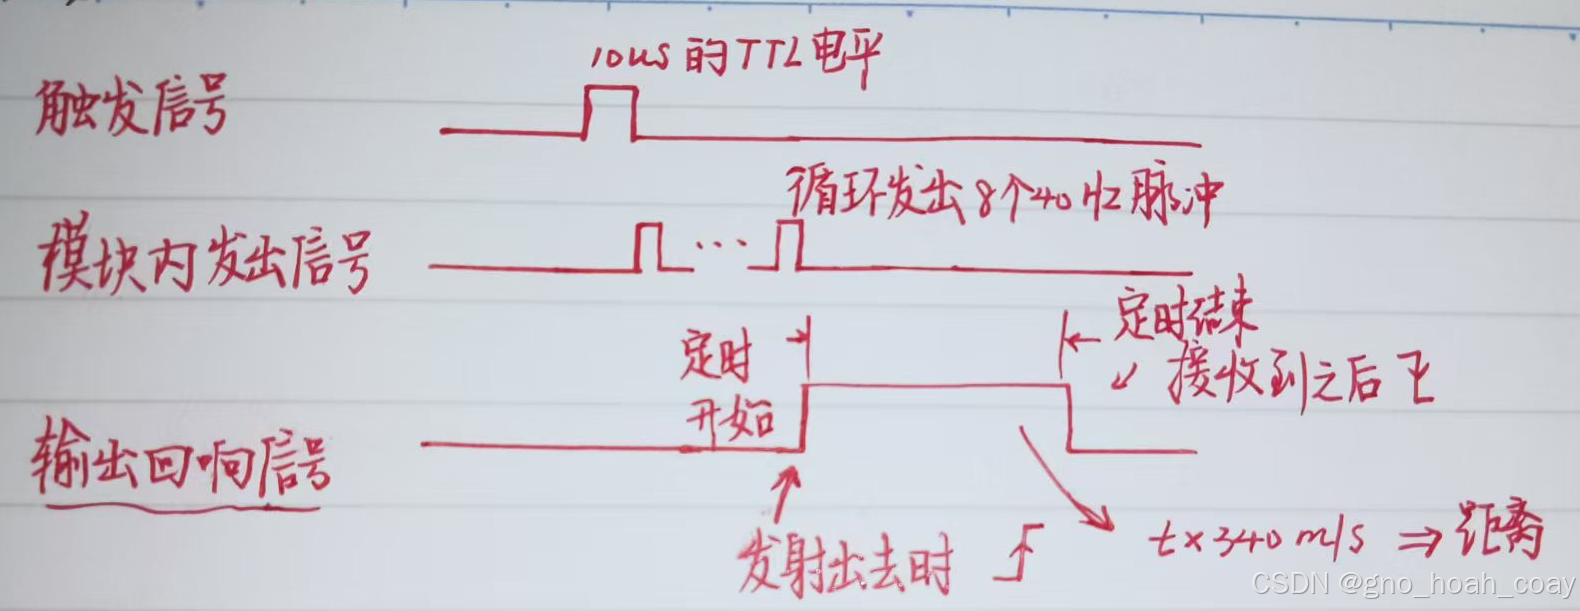 10us的TTL电平
触发信号
循环发出8个40Hz脉冲
模块内发出信号
定时结束
定时
开始
接收到之后
输出回响信号
发射出去时
t×340m/s⇒距离
CSDN @gno_hoah_coay